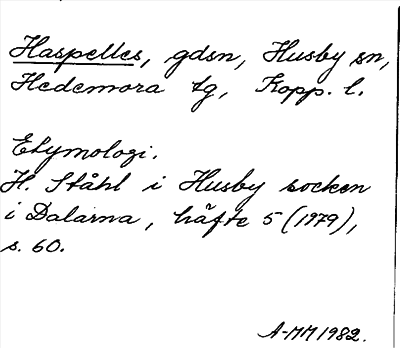 Haspelles, gdsn, Husby sn,
Hedemora tg, Kopp. l.
Etymologi.
H. Ståhl i Husby socken
i Dalarna, häfte 5 (1979),
s. 60.
A-MM 1982.